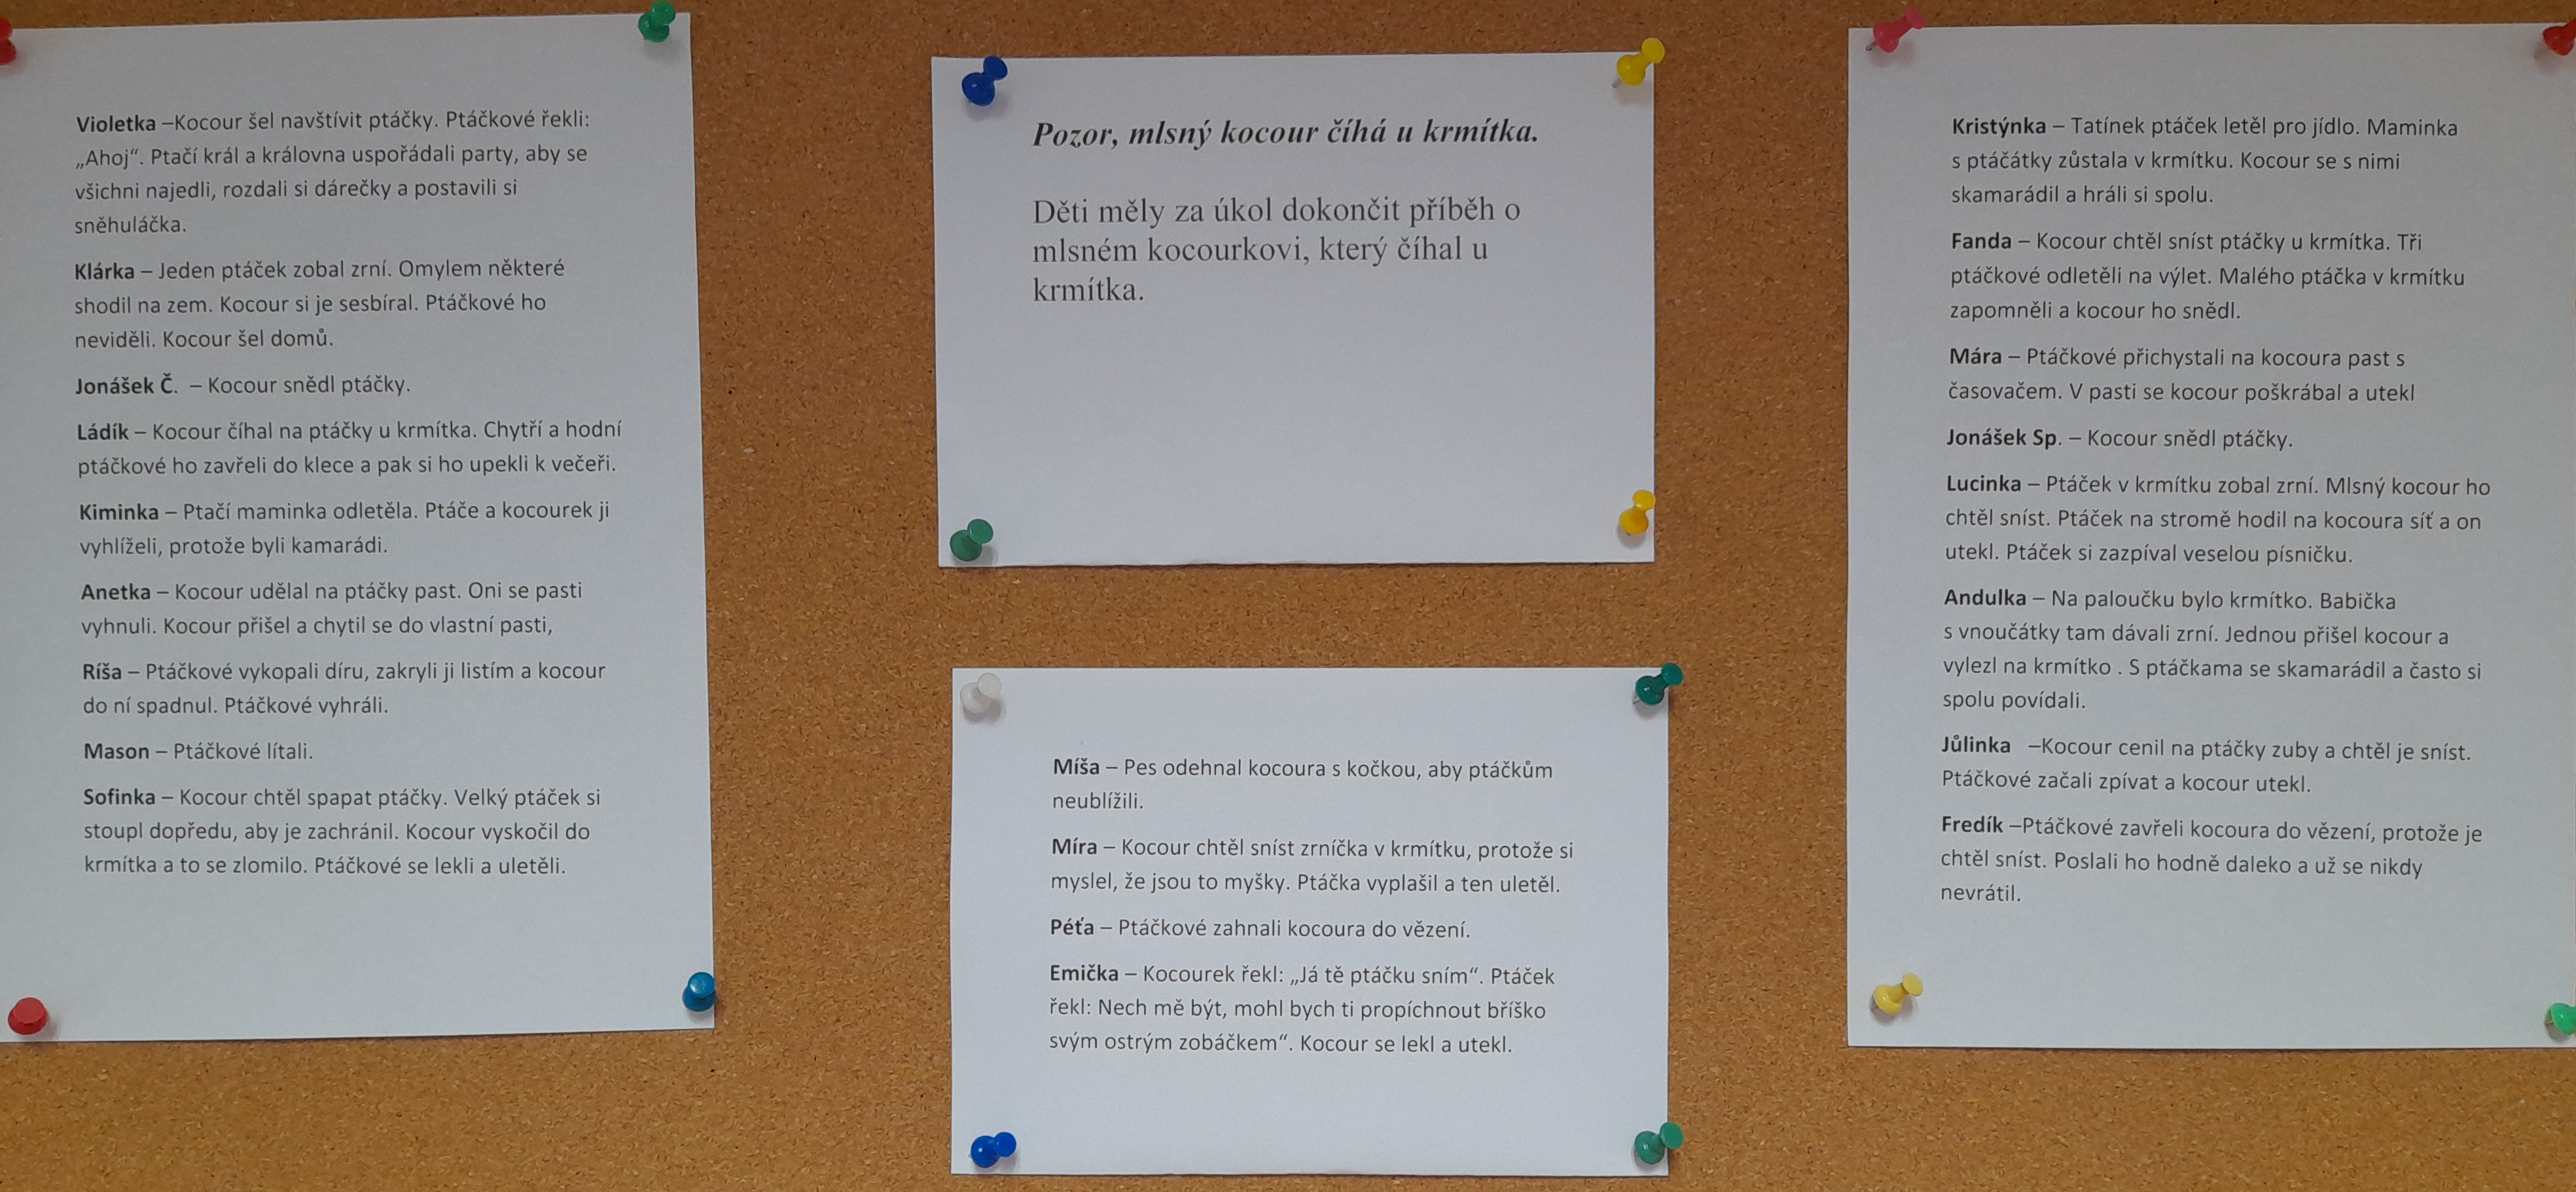 Violetka –Kocour šel navštívit ptáčky. Ptáčkové řekli:
„Ahoj“. Ptačí král a královna uspořádali party, aby se
všichni najedli, rozdali si dárečky a postavili si
sněhuláčka.
Klárka – Jeden ptáček zobal zrní. Omylem některé
shodil na zem. Kocour si je sesbíral. Ptáčkové ho
neviděli. Kocour šel domů.
Jonášek Č. – Kocour snědl ptáčky.
Ládík – Kocour číhal na ptáčky u krmítka. Chytří a hodní
ptáčkové ho zavřeli do klece a pak si ho upekli k večeři.
Kiminka – Ptačí maminka odletěla. Ptáče a kocourek ji
vyhlíželi, protože byli kamarádi.
Anetka – Kocour udělal na ptáčky past. Oni se pasti
vyhnuli. Kocour přišel a chytil se do vlastní pasti,
Ríša – Ptáčkové vykopali díru, zakryli ji listím a kocour
do ní spadnul. Ptáčkové vyhráli.
Mason – Ptáčkové lítali.
Sofinka – Kocour chtěl spapat ptáčky. Velký ptáček si
stoupl dopředu, aby je zachránil. Kocour vyskočil do
krmítka a to se zlomilo. Ptáčkové se lekli a uletěli.
Pozor, mlsný kocour číhá u krmítka.
Děti měly za úkol dokončit příběh o
mlsném kocourkovi, který číhal u
krmítka.
Míša – Pes odehnal kocoura s kočkou, aby ptáčkům
neublížili.
Míra – Kocour chtěl sníst zrníčka v krmítku, protože si
myslel, že jsou to myšky. Ptáčka vyplašil a ten uletěl.
Péťa – Ptáčkové zahnali kocoura do vězení.
Emička – Kocourek řekl: „Já tě ptáčku sním“. Ptáček
řekl: Nech mě být, mohl bych ti propíchnout bříško
svým ostrým zobáčkem“. Kocour se lekl a utekl.
Kristýnka – Tatínek ptáček letěl pro jídlo. Maminka
s ptáčátky zůstala v krmítku. Kocour se s nimi
skamarádil a hráli si spolu.
Fanda – Kocour chtěl sníst ptáčky u krmítka. Tři
ptáčkové odletěli na výlet. Malého ptáčka v krmítku
zapomněli a kocour ho snědl.
Mára – Ptáčkové přichystali na kocoura past s
časovačem. V pasti se kocour poškrábal a utekl
Jonášek Sp. – Kocour snědl ptáčky.
Lucinka – Ptáček v krmítku zobal zrní. Mlsný kocour ho
chtěl sníst. Ptáček na stromě hodil na kocoura síť a on
utekl. Ptáček si zazpíval veselou písničku.
Andulka – Na paloučku bylo krmítko. Babička
s vnoučátky tam dávali zrní. Jednou přišel kocour a
vylezl na krmítko . S ptáčkama se skamarádil a často si
spolu povídali.
Jůlinka –Kocour cenil na ptáčky zuby a chtěl je sníst.
Ptáčkové začali zpívat a kocour utekl.
Fredík –Ptáčkové zavřeli kocoura do vězení, protože je
chtěl sníst. Poslali ho hodně daleko a už se nikdy
nevrátil.